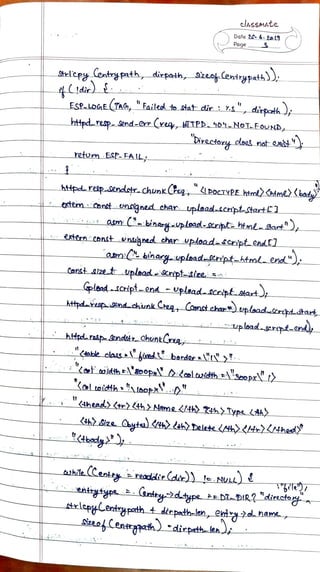 classmate
Date 25-6-2019
Page 3
strlcpy (entrypath, dirpath, sizeof (entrypath));
if (!dir) {
ESP-LOGE (TAG, "Failed to stat dir : %s", dirpath);
httpd_resp_send-err (req, HTTPD_404_NOT_FOUND,
"Directory does not exist");
return ESP-FAIL;
}
httpd_resp_sendstr_chunk (req, "<!DOCTYPE html> <html> <body>"
extern const unsigned char upload_script_start[]
asm ("_binary_upload_script_html_start"),
extern const unsigned char upload_script_end[]
asm ("_binary_upload_script_html_end");
const size_t upload_script_size =
(upload_script_end - upload_script_start);
httpd_resp_send_chunk (req, (const char*) upload_script_start,
upload_script_end);
httpd_resp_sendstr_chunk (req,
"<table class=\"fixed\" border=\"1\">"
"<col width=\"800px\" /> <col width=\"300px\" />
"<col width=\"100px\" />"
"<thead> <tr> <th> Name </th> <th> Type <th>
<th> Size (bytes) </th> <th> Delete </th> </tr> </thead>"
"<tbody>");
while ((entry = readdir (dir)) != NULL) {
entrytype = (entry->d_type == DT_DIR ? "directory" : "file");
strlcpy (entrypath + dirpath_len, entry->d_name,
sizeof (entrypath) - dirpath_len);